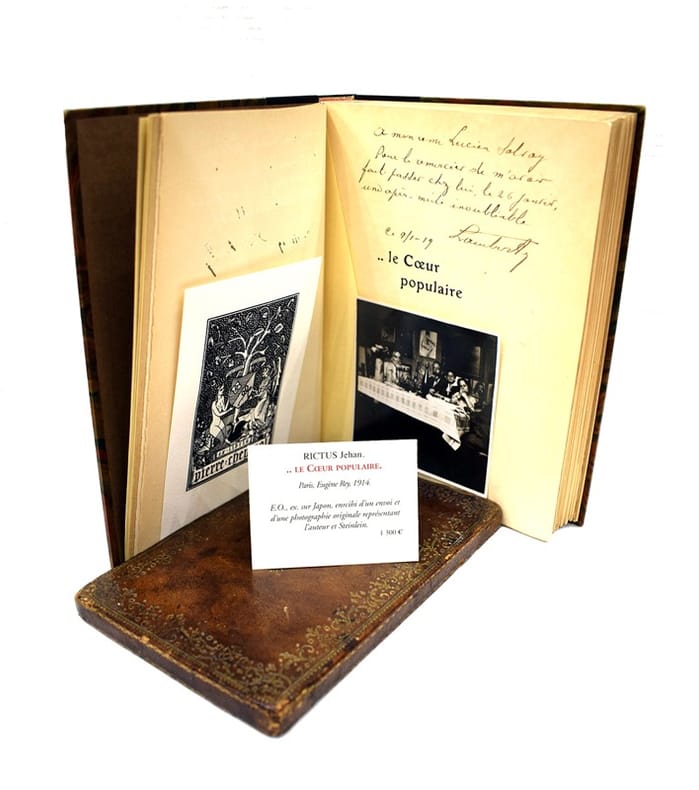 A mon ami Lucien
Pour le remercier de m'avoir
fait passer chez lui, le 26 janvier,
une après-midi inoubliable
Ce 9/1-19
.. le Cœur
populaire
RICTUS Jehan.
.. LE CŒUR POPULAIRE.
Paris. Eugène Rey, 1914.
E.O., ex. sur Japon, enrichi d'un envoi et
d'une photographie originale représentant
l'auteur et Steinlein.
1 300 €